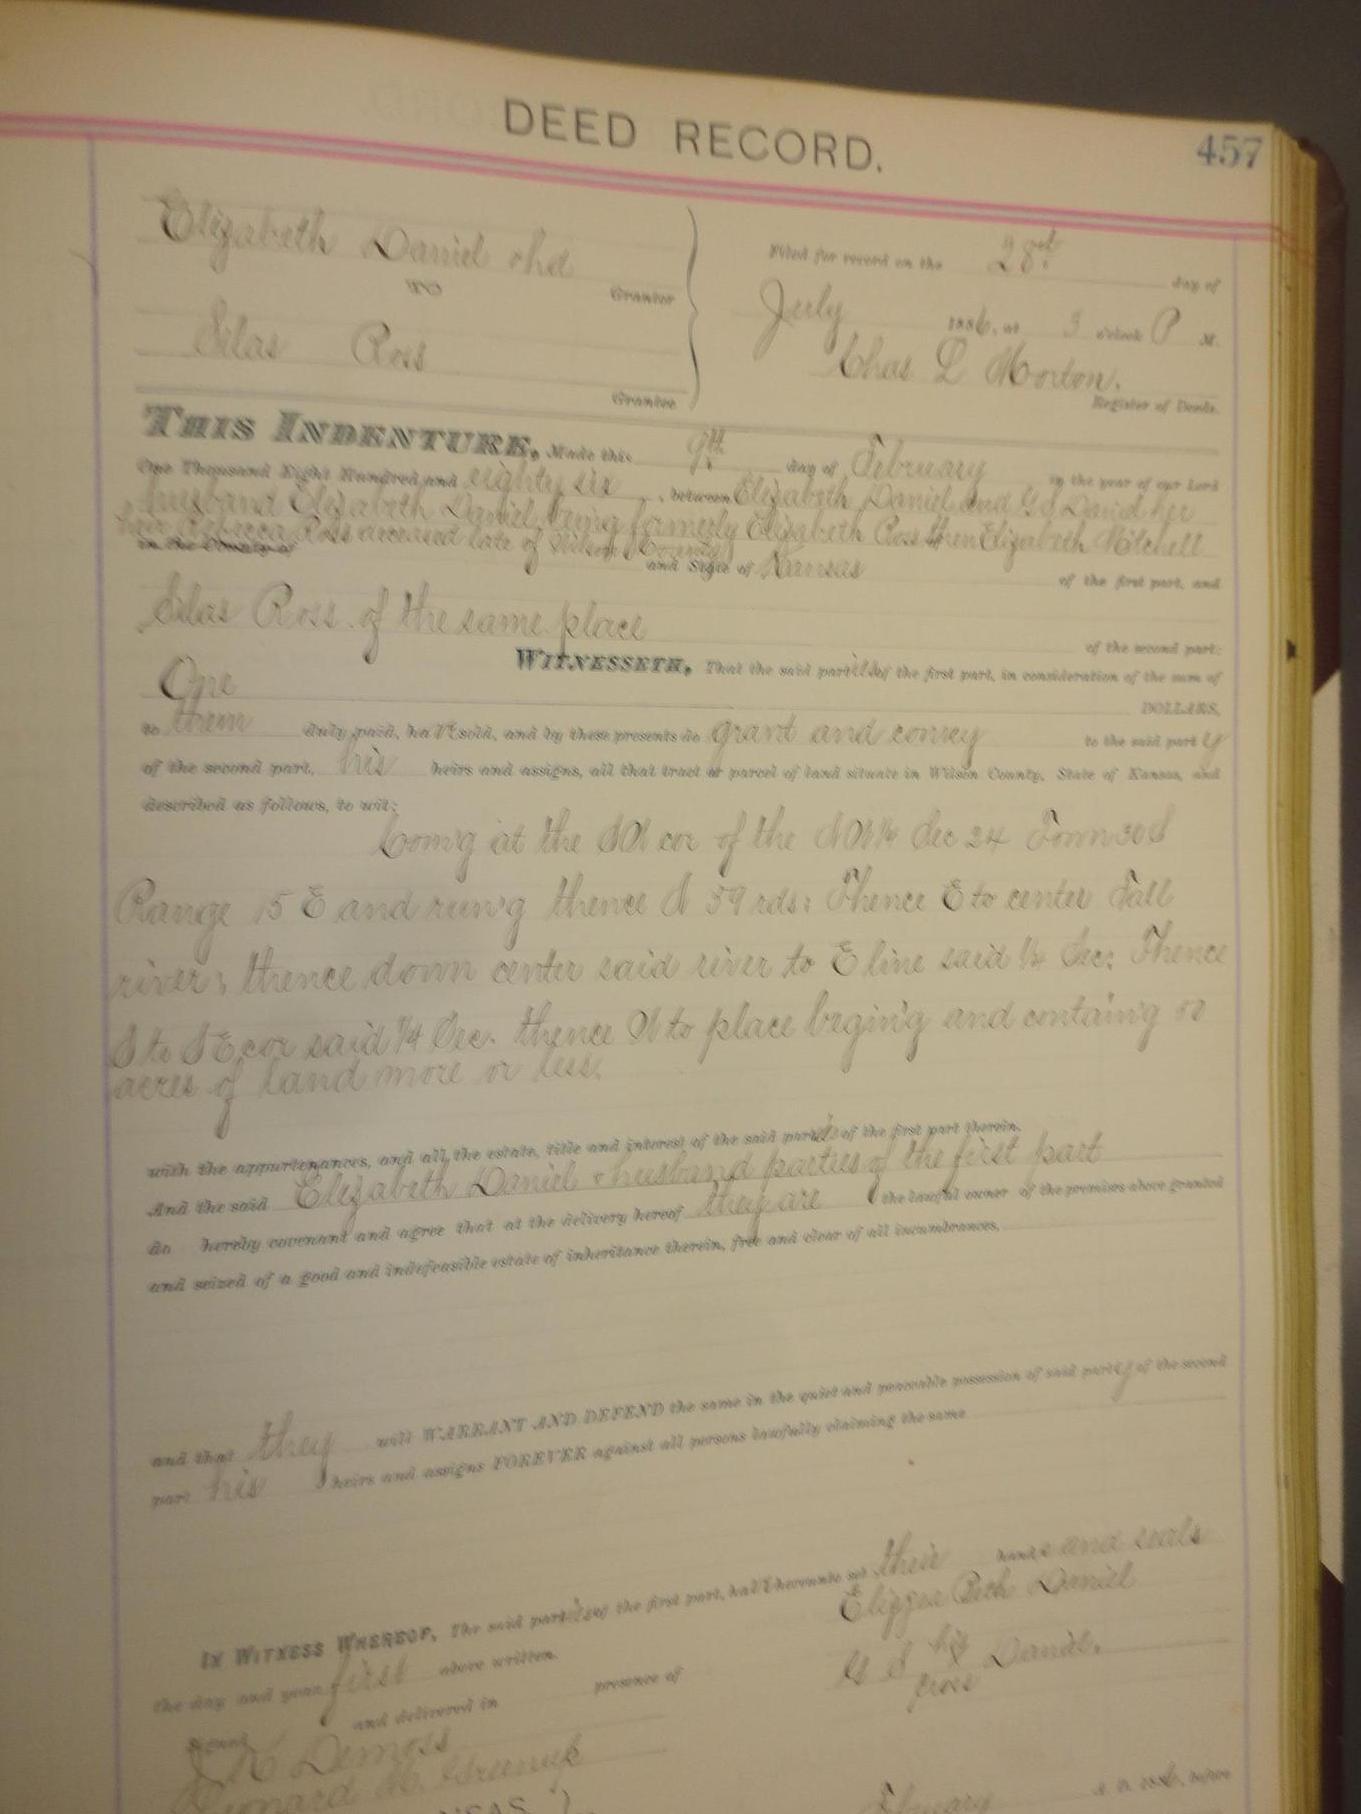 DEED RECORD.
457
Elizabeth Daniel & hd
TO
Grantor
Silas Ross
Grantee
Filed for record on the 28th day of
July 1886, at 3 o'clock P M.
Chas L Morton.
Register of Deeds.
THIS INDENTURE, Made this 9th day of February in the year of our Lord
One Thousand Eight Hundred and eighty six, between Elizabeth Daniel and G S Daniel her
husband Elizabeth Daniel, being formerly Elizabeth Ross then Elizabeth Mitchell
heir Rebecca Ross deceased late of Wilson County
in the County of and State of Kansas of the first part, and
Silas Ross of the same place of the second part:
WITNESSETH, That the said parties of the first part, in consideration of the sum of
One DOLLARS,
to them duly paid, have sold, and by these presents do grant and convey to the said party
of the second part, his heirs and assigns, all that tract or parcel of land situate in Wilson County, State of Kansas, and
described as follows, to wit:
Com'g at the SW cor of the 1/4 Sec 24 Town 30 S
Range 15 E and run'g thence N 59 rds; Thence E to center Fall
river; thence down center said river to E line said 1/4 Sec; Thence
S to S E cor said 1/4 Sec. thence W to place begin'g and contain'g
acres of land more or less.
with the appurtenances, and all the estate, title and interest of the said parties of the first part therein.
And the said Elizabeth Daniel & husband parties of the first part
do hereby covenant and agree that at the delivery hereof they are the lawful owner of the premises above granted
and seized of a good and indefeasible estate of inheritance therein, free and clear of all incumbrances,
and that they will WARRANT AND DEFEND the same in the quiet and peaceable possession of said party of the second
part his heirs and assigns FOREVER against all persons lawfully claiming the same
IN WITNESS WHEREOF, The said parties of the first part, have hereunto set their hands and seals
the day and year first above written.
Elizzea Beth Daniel
G S his Daniel.
cross
Signed and delivered in presence of
J K Demoss
Leonard H.
February A. D. 1886, before